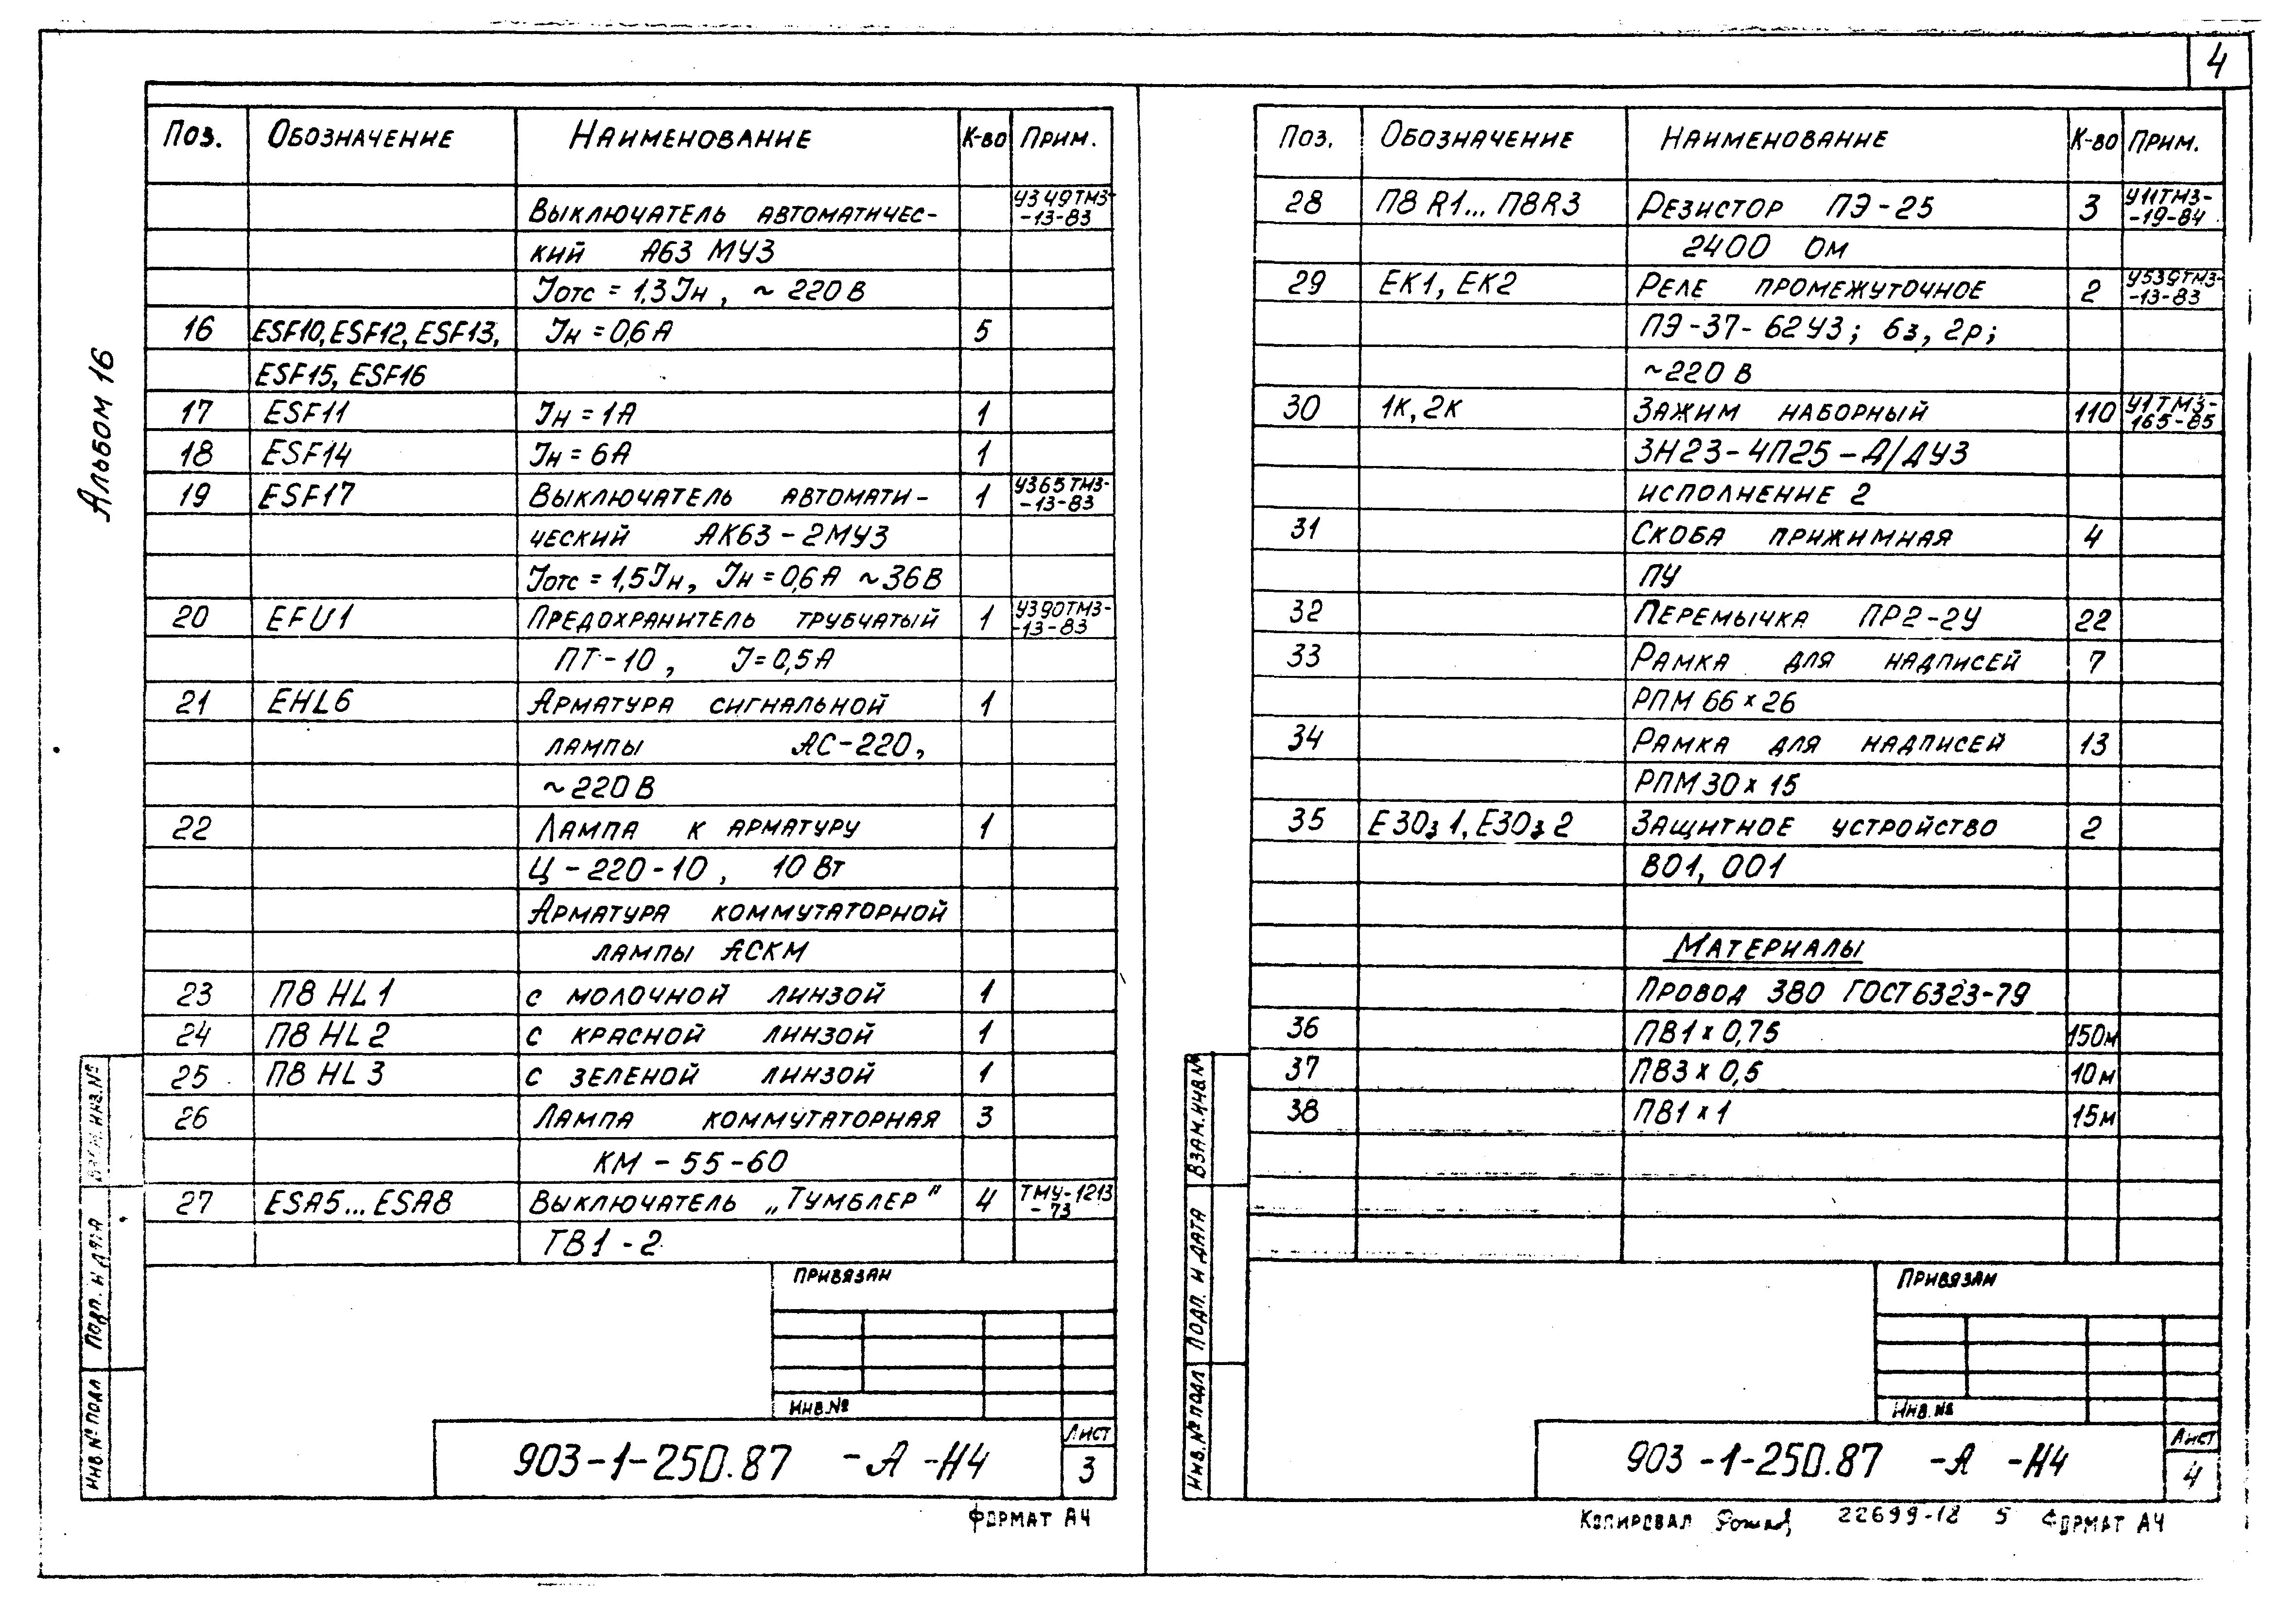 4
Альбом 16
Поз. Обозначение Наименование К-во Прим.
Выключатель автоматичес- У349ТМ3-
-13-83
кий А63 МУ3
Iотс = 1,3Iн , ~ 220 В
16 ESF10, ESF12, ESF13, Iн = 0,6 А 5
ESF15, ESF16
17 ESF11 Iн = 1А 1
18 ESF14 Iн = 6А 1
19 ESF17 Выключатель автомати- 1 У365ТМ3-
-13-83
ческий АК63-2МУ3
Iотс = 1,5Iн, Iн = 0,6 А ~36 В
20 EFU1 Предохранитель трубчатый 1 У390ТМ3-
-13-83
ПТ-10, I=0,5А
21 EHL6 Арматура сигнальной 1
лампы АС-220,
~220 В
22 Лампа к арматуру 1
Ц-220-10, 10 Вт
Арматура коммутаторной
лампы АСКМ
23 П8 HL1 с молочной линзой 1
24 П8 HL2 с красной линзой 1
25 П8 HL3 с зеленой линзой 1
26 Лампа коммутаторная 3
КМ-55-60
27 ESA5...ESA8 Выключатель „Тумблер" 4 ТМУ-1213
-73
ТВ1-2
Привязан
Инв.№
903-1-250.87 -А -Н4
Лист
3
Формат А4
Взам.инв.№
Подп. и дата
Инв.№ подл
Поз. Обозначение Наименование К-во Прим.
28 П8R1...П8R3 Резистор ПЭ-25 3 У11ТМ3-
-19-84
2400 Ом
29 ЕК1, ЕК2 Реле промежуточное 2 У539ТМ3-
-13-83
ПЭ-37-62У3; 6з, 2р;
~220 В
30 1К, 2К Зажим наборный 110 У1ТМ3-
165-85
ЗН23-4П25-Д/ДУ3
исполнение 2
31 Скоба прижимная 4
ПУ
32 Перемычка ПР2-2У 22
33 Рамка для надписей 7
РПМ 66×26
34 Рамка для надписей 13
РПМ 30×15
35 Е30з1, Е30з2 Защитное устройство 2
В01, 001
Материалы
Провод 380 ГОСТ 6323-79
36 ПВ1×0,75 150м
37 ПВ3×0,5 10м
38 ПВ1×1 15м
Привязан
Инв.№
903-1-250.87 -А -Н4
Лист
4
Копировал 22699-18 5 Формат А4
Взам.инв.№
Подп. и дата
Инв.№ подл